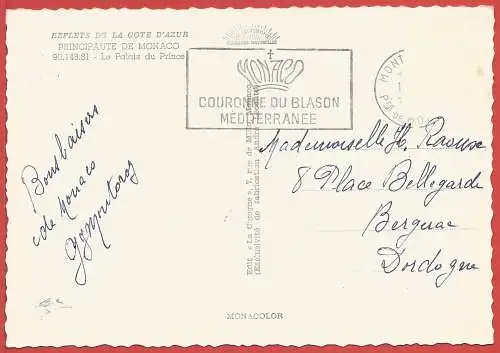 REFLETS DE LA COTE D'AZUR
PRINCIPAUTE DE MONACO
90.148.81 - Le Palais du Prince
MONACO
COURONNE DU BLASON
MÉDITERRANÉE
MONT
Bons baisers
de Monaco
Mademoiselle H.
8 Place Bellegarde
Bergerac
Dordogne
Edit. « La Cigogne », 7, rue de Millo, Monaco
(Exclusivité de fabrication
MONACOLOR